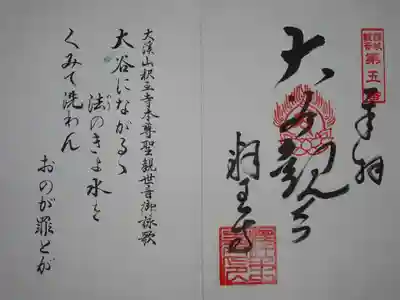 第五番
奉拝
大谷観音
釈王寺
大溪山釈王寺本尊聖観世音御詠歌
大谷にながるゝ
法のきよ水を
くみて洗わん
おのが罪とが